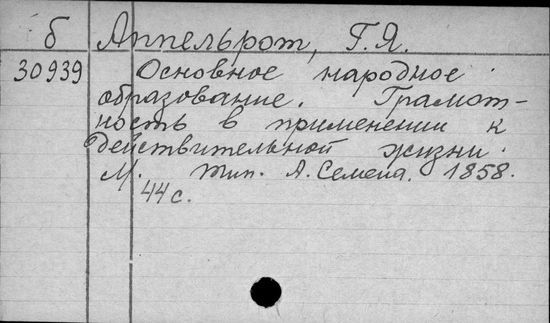 б Аппельрот, Г.Я.
30939 Основное народное
образование. Грамот-
ность в применении к
действительной жизни.
М. Тип. А. Семена. 1858.
44 с.